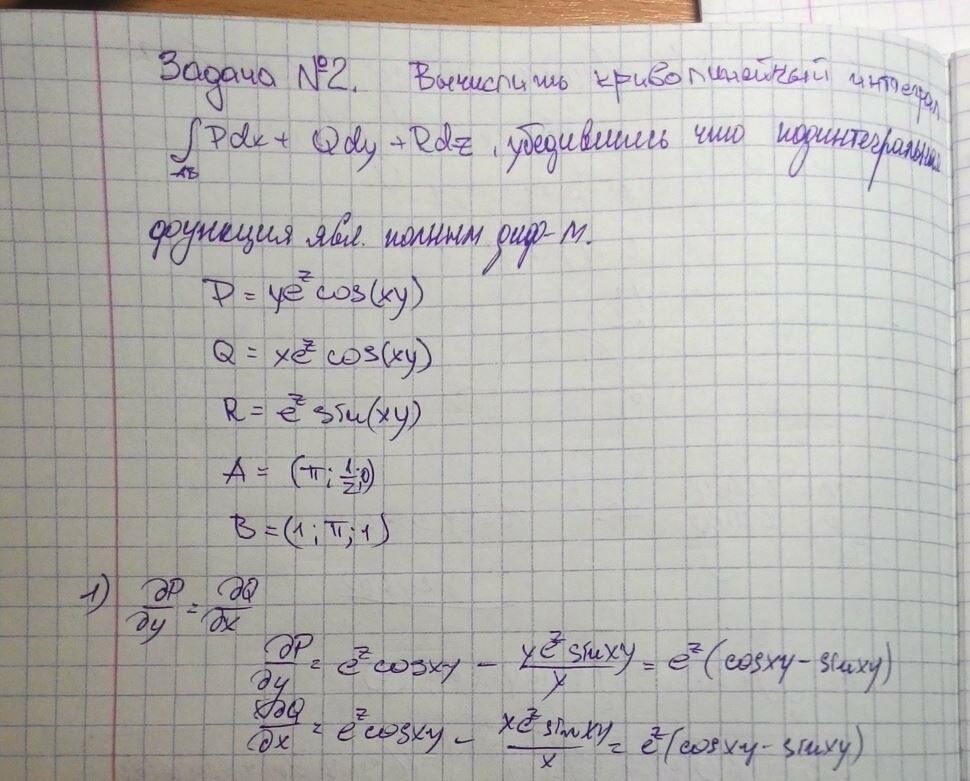 Задача №2. Вычислить криволинейный интеграл
∫_{AB} Pdx + Qdy + Rdz, убедившись что подинтегральная
функция явл. полным диф-м.
P = ye^z cos(xy)
Q = xe^z cos(xy)
R = e^z sin(xy)
A = (π; 1/2; 0)
B = (1; π; 1)
1) ∂P/∂y = ∂Q/∂x
∂P/∂y = e^z cosxy - ye^z sinxy/y = e^z (cosxy - sinxy)
∂Q/∂x = e^z cosxy - xe^z sinxy/x = e^z (cosxy - sinxy)